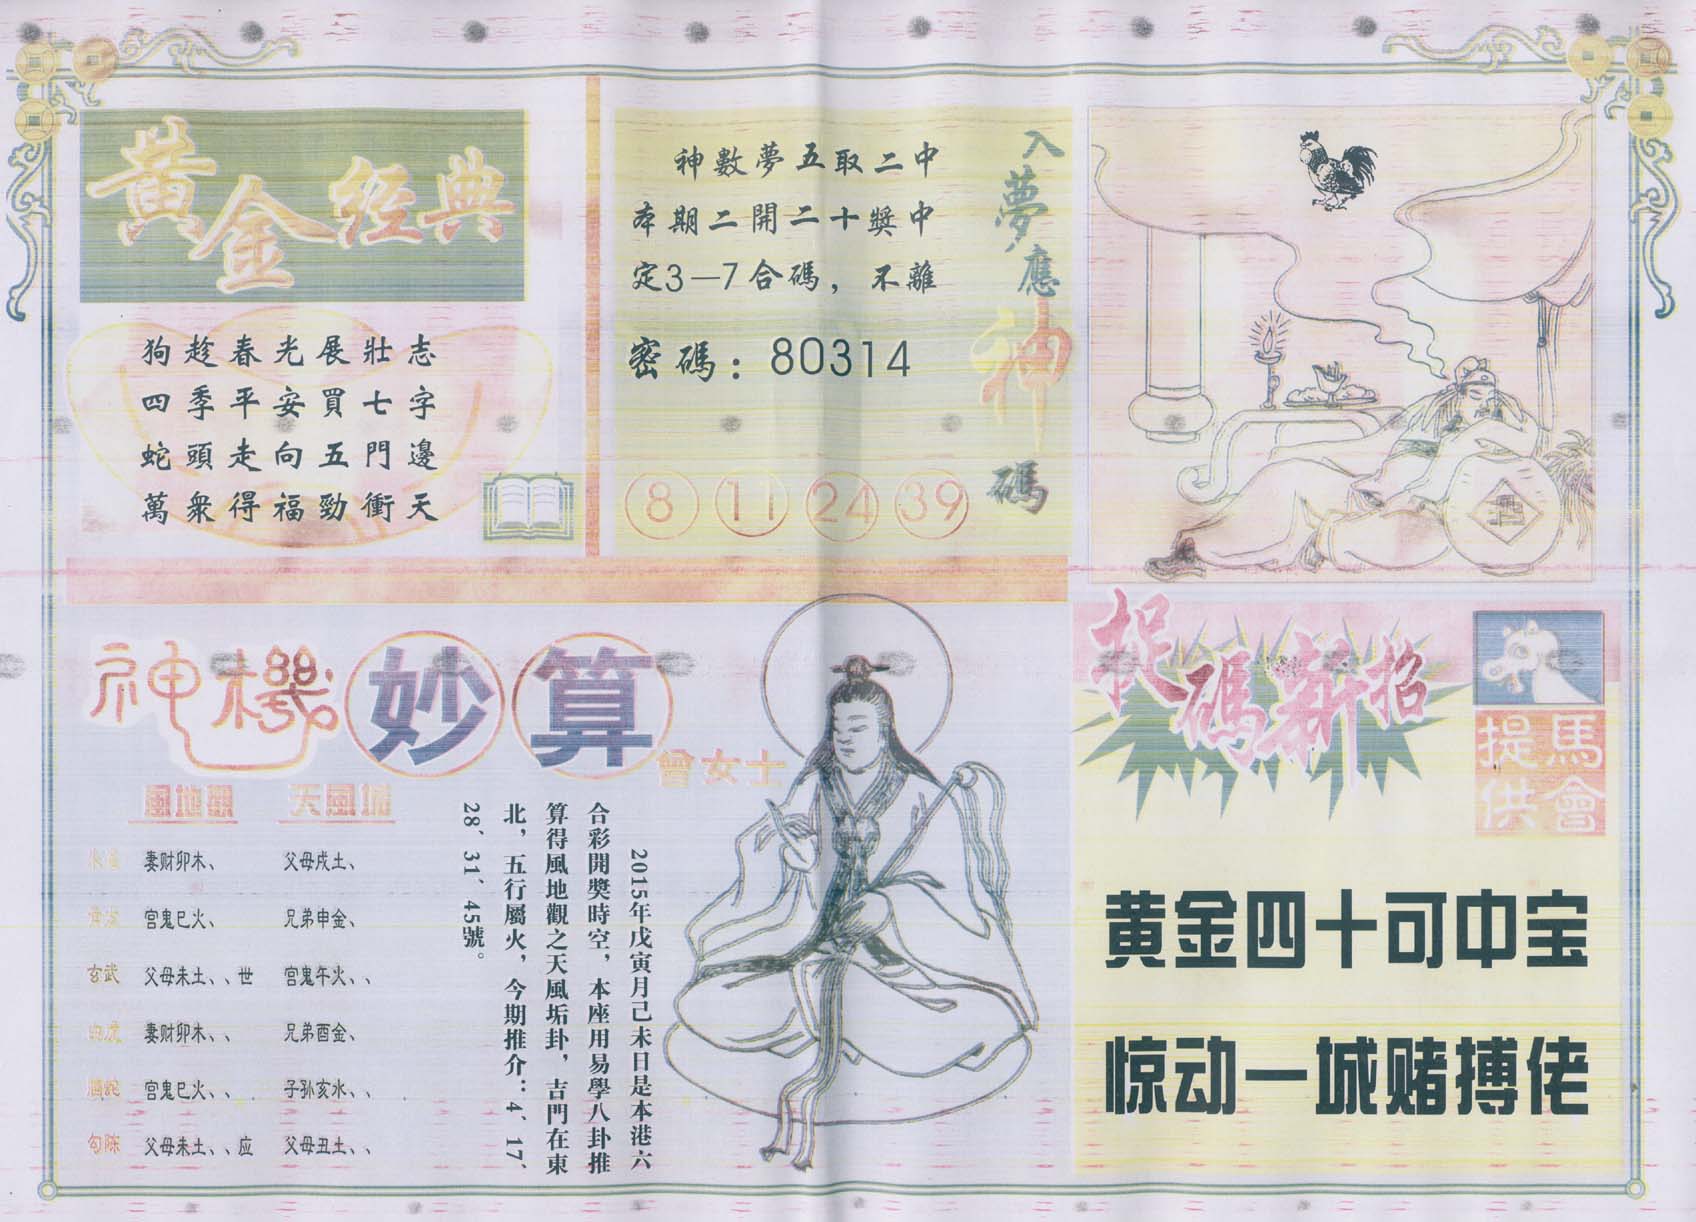 黄金经典
狗趁春光展壯志
四季平安買七字
蛇頭走向五門邊
萬衆得福勁衝天
入夢應神碼
神數夢五取二中
本期二開二十獎中
定3—7合碼，不離
密碼：80314
8 11 24 39
神機妙算
曾女士
風地觀 天風垢
朱雀 妻财卯木、 父母戌土、
青龙 官鬼巳火、 兄弟申金、
玄武 父母未土、、世 官鬼午火、、
白虎 妻财卯木、、 兄弟酉金、
螣蛇 官鬼巳火、、 子孙亥水、、
勾陈 父母未土、、应 父母丑土、、
2015年戊寅月己未日是本港六
合彩開獎時空，本座用易學八卦推
算得風地觀之天風垢卦，吉門在東
北，五行屬火，今期推介：4、17、
28、31、45號。
捉碼新招
馬會提供
黄金四十可中宝
惊动一城赌搏佬